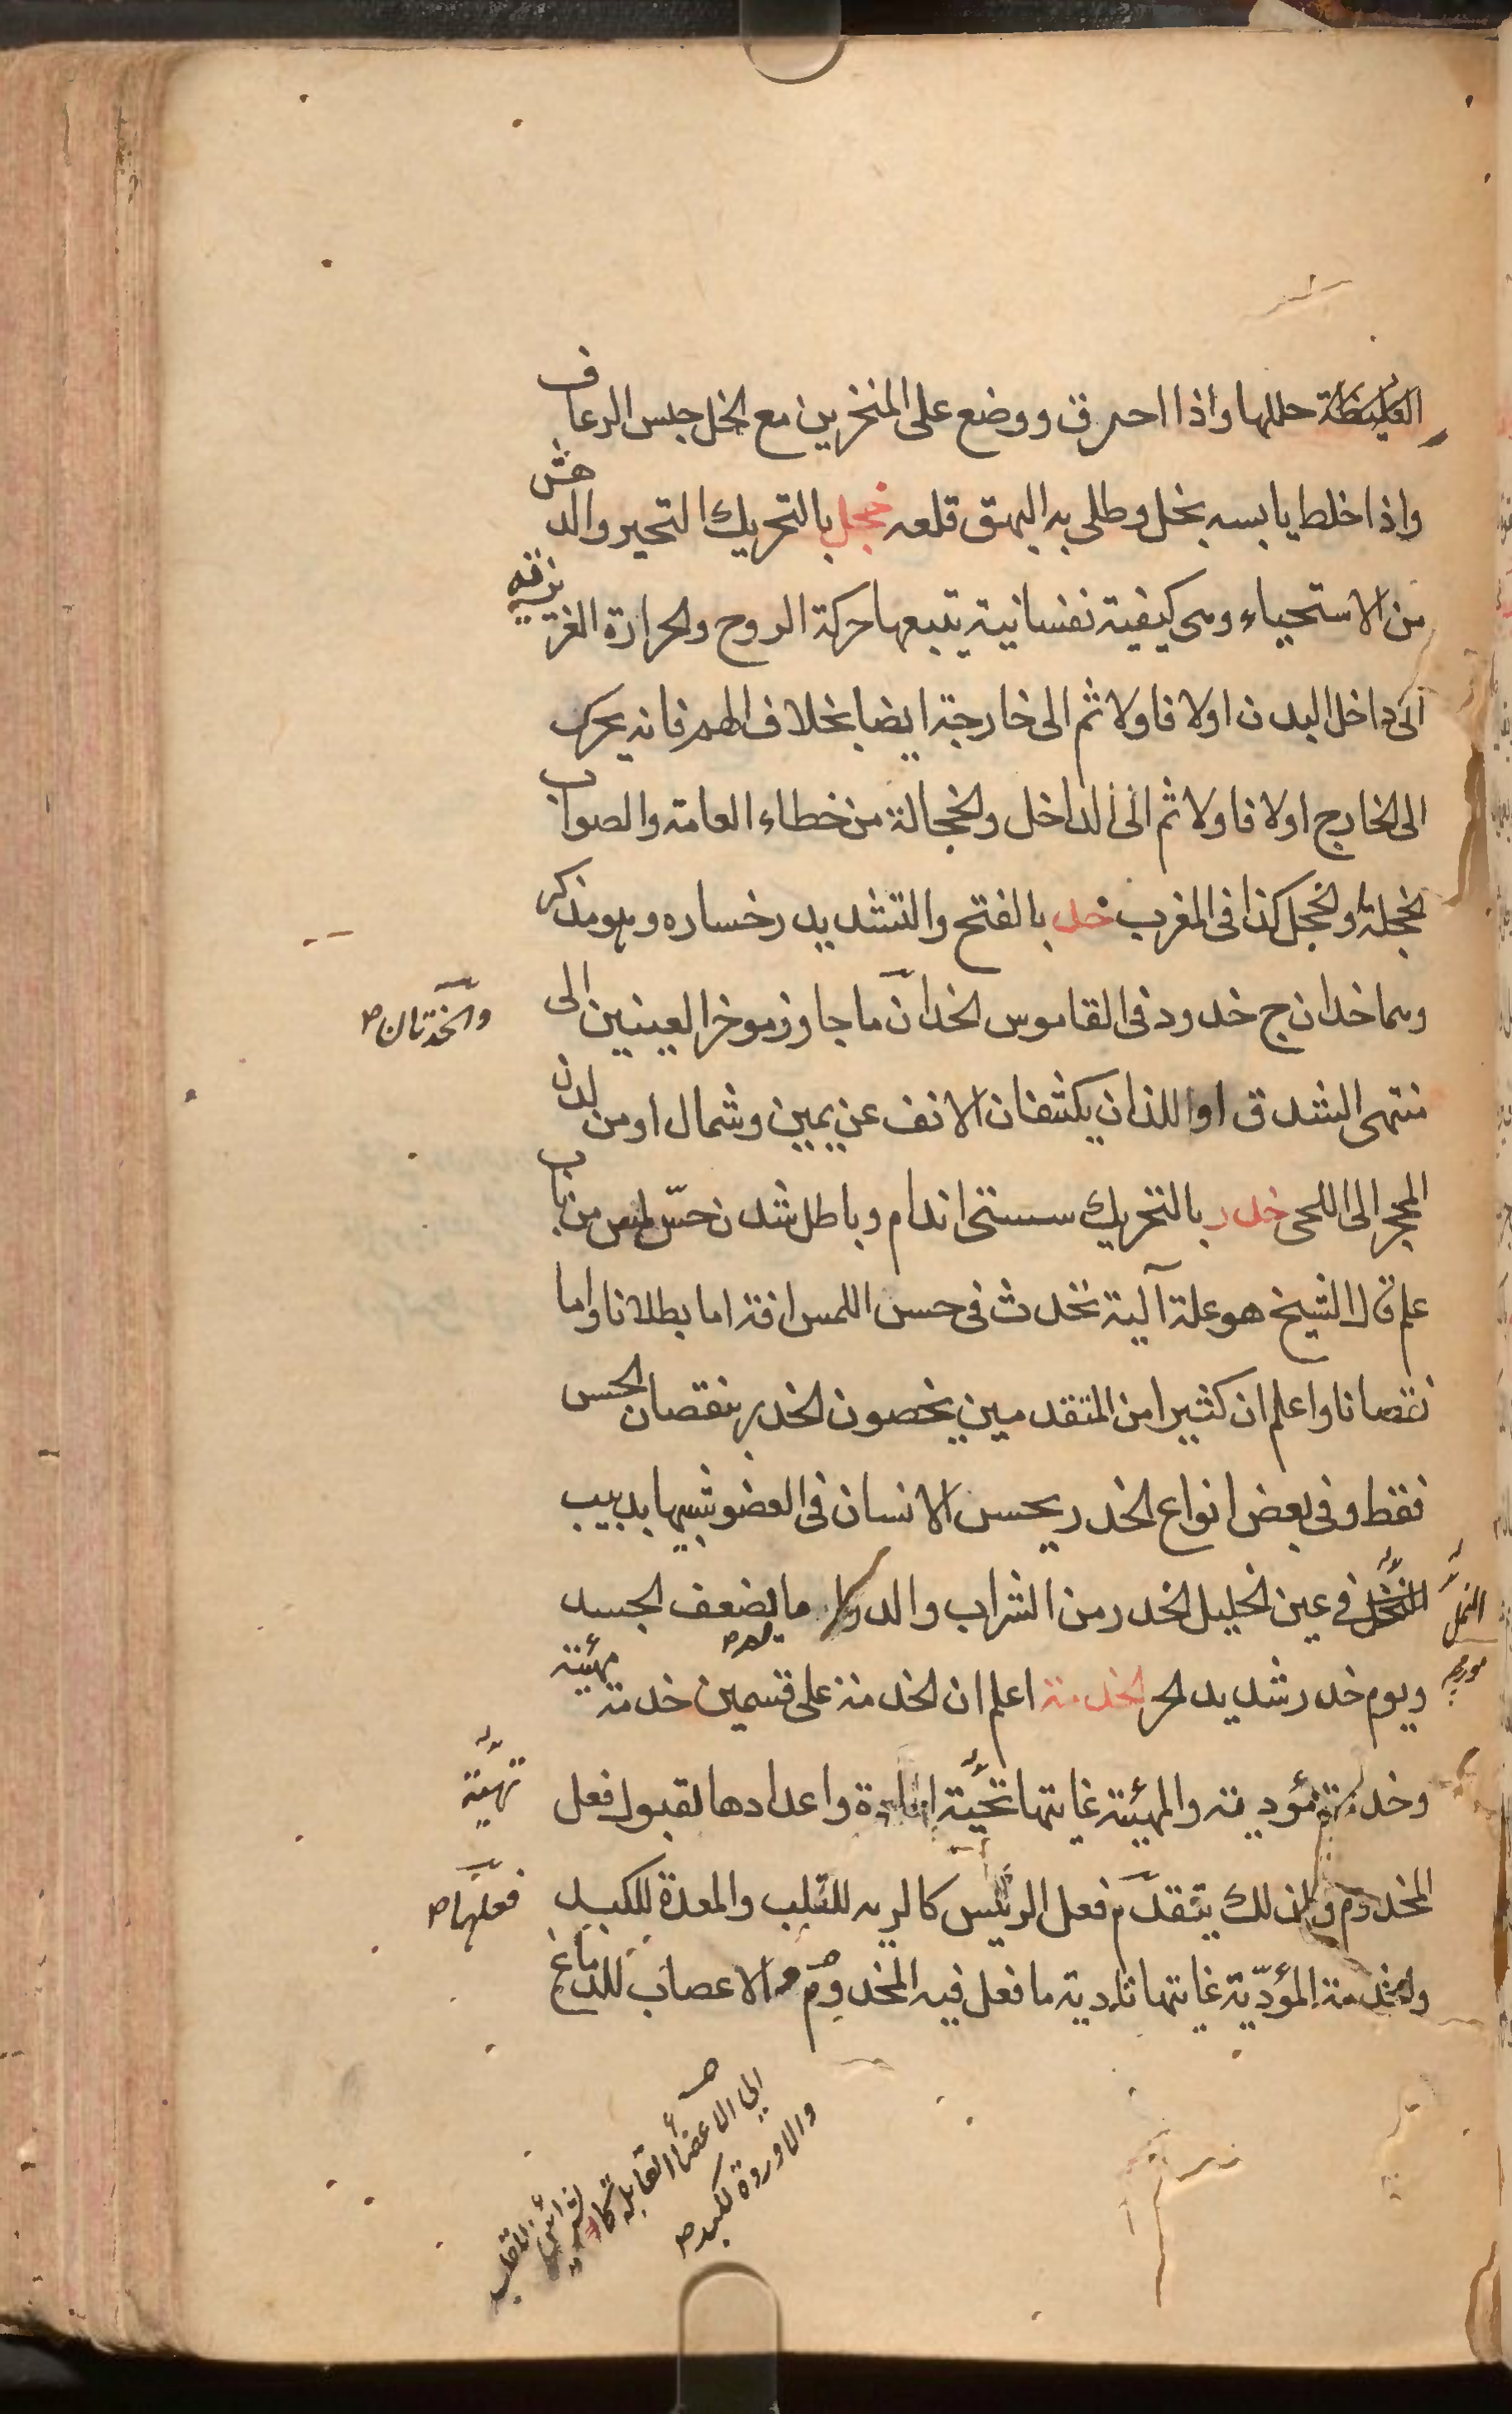 الغليظة حللها واذا احرق ووضع على المنخرين مع الخل حبس الرعاف
واذا خلط يابسه بخل وطلى به البهق قلعه خجل بالتحريك التحير والدهش
من الاستحياء وهى كيفية نفسانية يتبعها حركة الروح والحرارة الغريزية
الى داخل البدن اولا فاولا ثم الى خارجة ايضا بخلاف الهم فانه يحرك
الى الخارج اولا فاولا ثم الى الداخل والخجالة من خطاء العامة والصواب
الخجلة والخجل كذا فى المغرب خد بالفتح والتشديد رخساره وهو مذكر
وهما خدان ج خدود فى القاموس الخدان ما جاوز موخر العينين الى
والخدتان صح
منتهى الشدق او اللذان يكتنفان الانف عن يمين وشمال او من لدن
المحجر الى اللحى خدر بالتحريك سستى اندام وباطل شدن حسّ لمس من باب
علم قال الشيخ هو علة آلية تحدث فى حس اللمس افة اما بطلانا واما
نقصانا واعلم ان كثيرا من المتقدمين يخصون الخدر بنقصان الحس
فقط وفى بعض انواع الخدر يحس الانسان فى العضو شبيها بدبيب
النمل فى عين الخليل الخدر من الشراب والدواء ما يضعف الجسد
النمل
مورچه
ويوم خدر شديد الحر الخدمة اعلم ان الخدمة على قسمين خدمة مهيئة
وخدمة مؤدية والمهيئة غايتها تهيّة المادة واعدادها لقبول فعل
تهيّة
المخدوم ولذلك يتقدّم فعل الرئيس كالريه للقلب والمعدة للكبد
فعلها صح
والخدمة المؤدّية غايتها تادية ما فعل فيه المخدوم والاعصاب للدماغ
الى الاعضاء القابلة كالشرائين للقلب
والاوردة للكبد صح